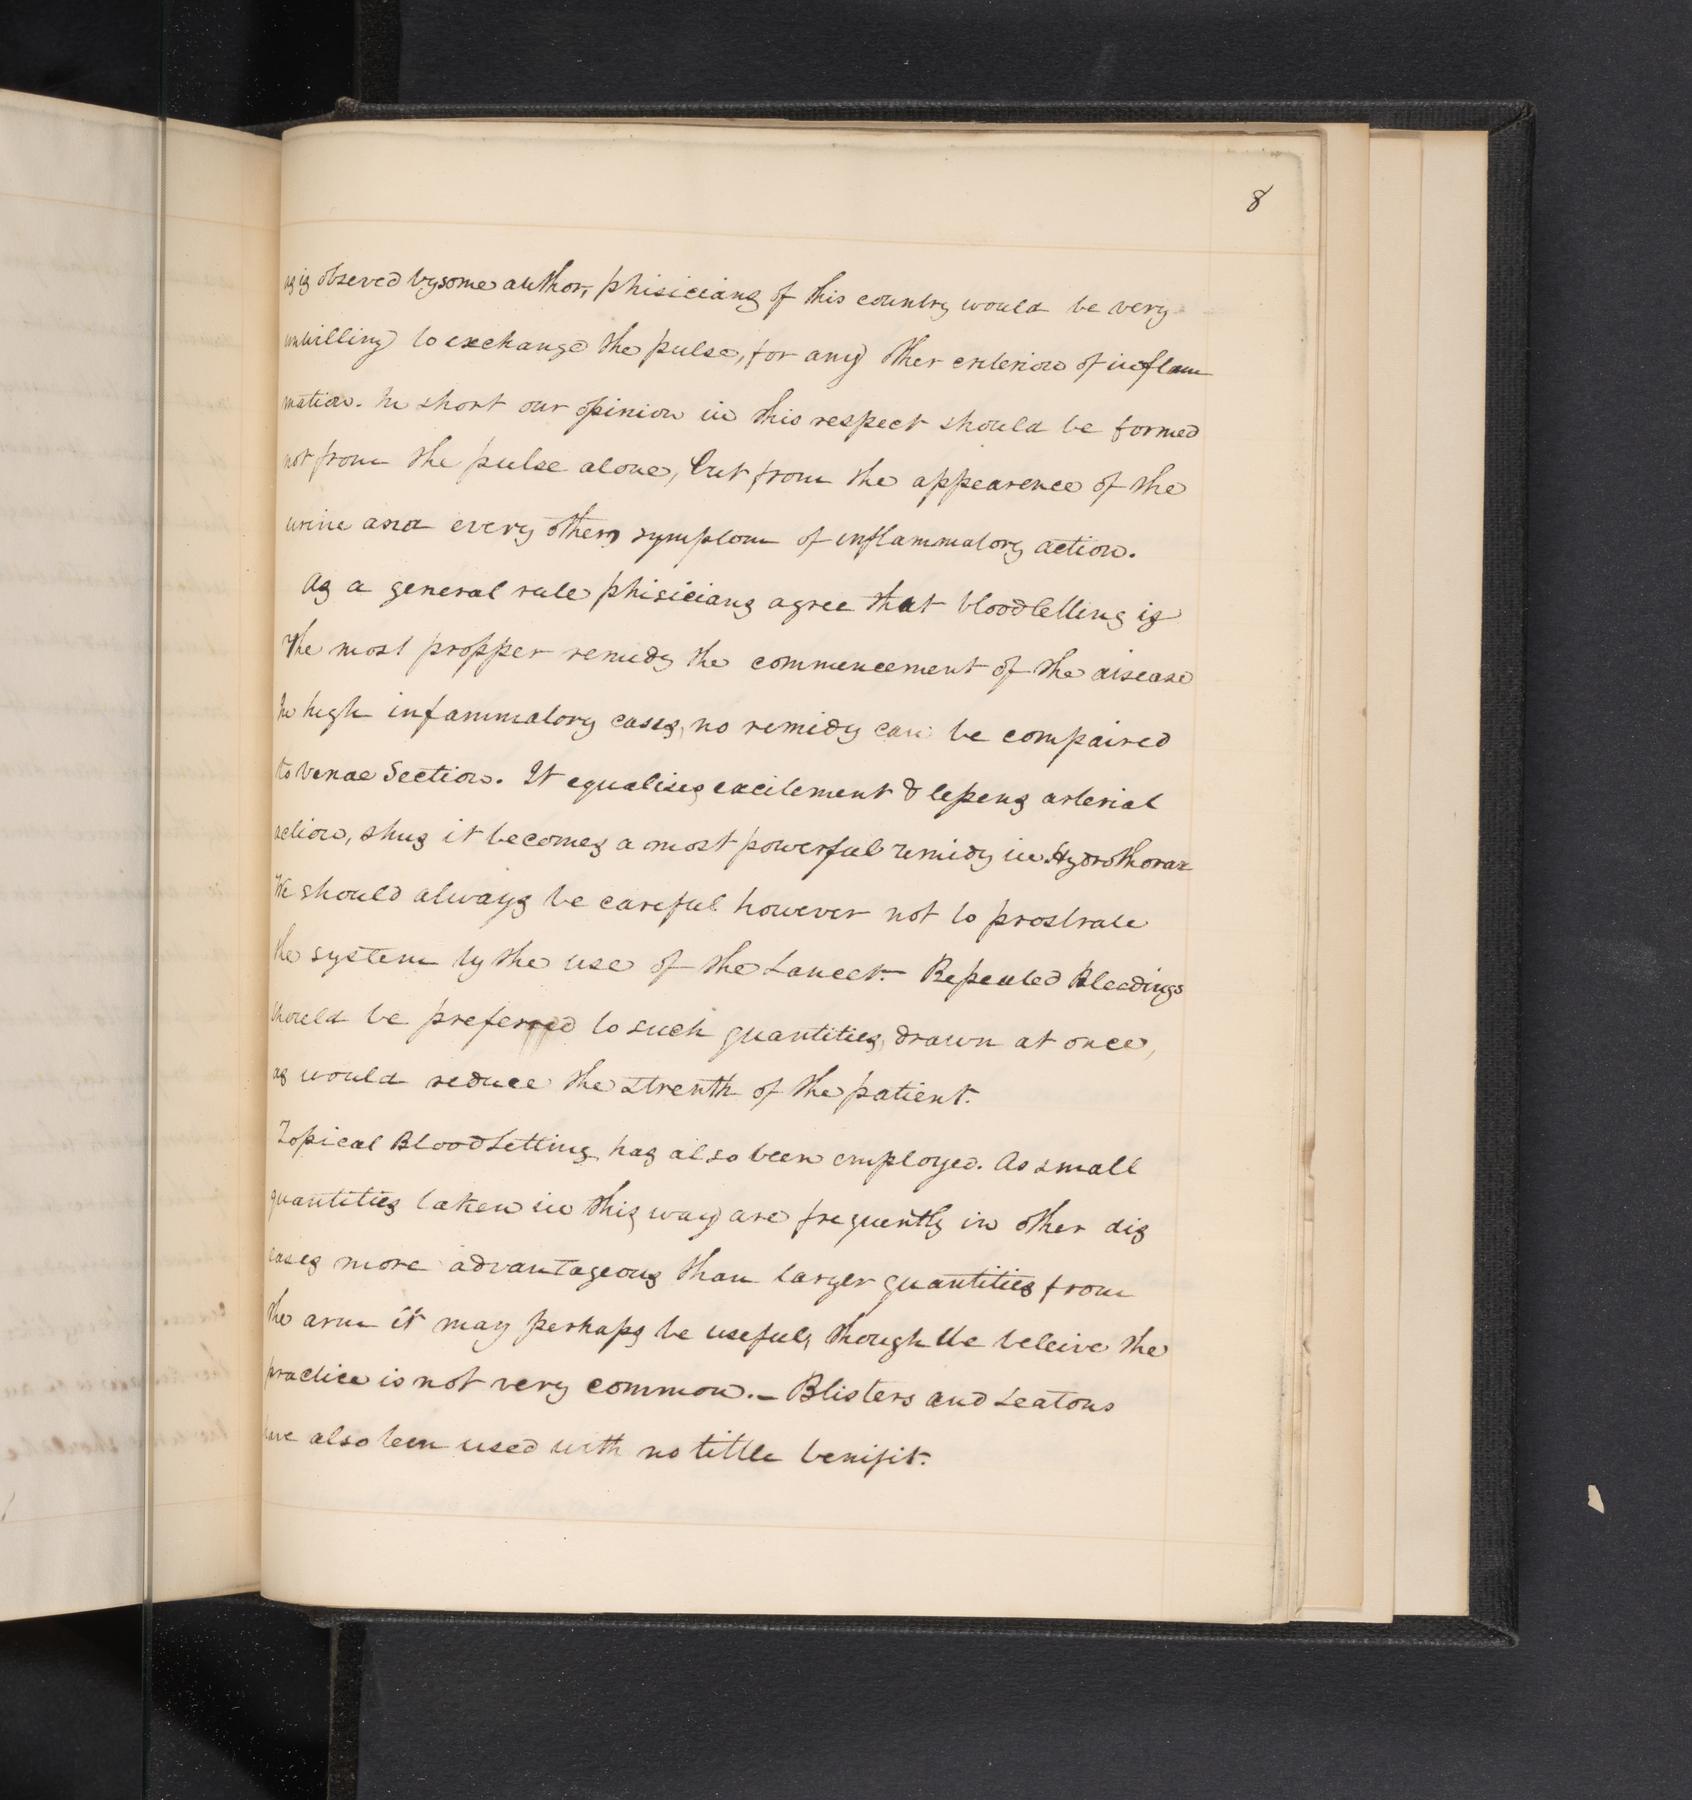 8
as is obseved by some author, phisicians of this country would be very
unwilling to exchange the pulse, for any other criterion of inflam
mation. In short our opinion in this respect should be formed
not from the pulse alone, but from the appearence of the
urine and every other symptom of inflammatory action.
As a general rule phisicians agree that bloodletting is
the most propper remidy the commencement of the disease
In high infammatory cases, no remidy can be compaired
to venae Section. It equalises excitement & lessens arterial
action, thus it becomes a most powerful remidy in Hydrothorax
We should always be careful however not to prostrate
the system by the use of the Lancet. Repeated Bleedings
should be preferred to such quantities, drawn at once,
as would reduce the strenth of the patient.
Topical Bloodletting has also been employed. As small
quantities taken in this way are frequently in other dis
eases more advantageous than larger quantities from
the arm it may perhaps be useful, though We beleive the
practice is not very common. — Blisters and Seatons
have also been used with no little benifit.